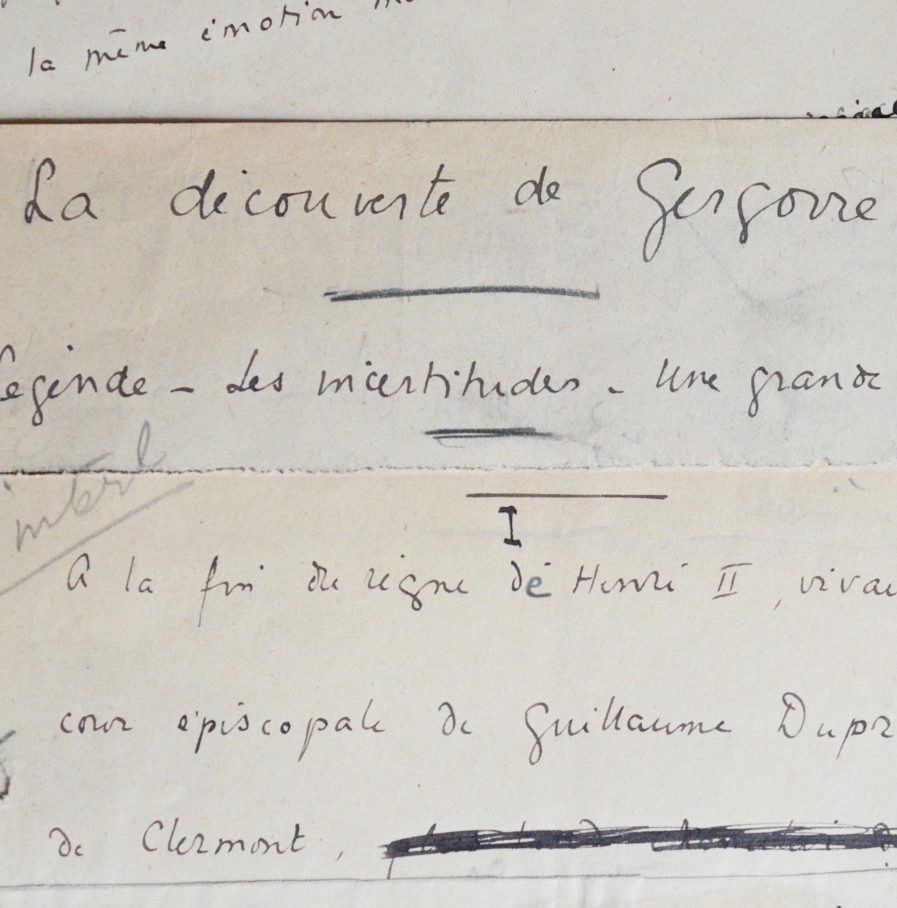 la même émotion
La découverte de Gergovie
Légende - Les incertitudes - Une grande
I
A la fin du règne de Henri II, vivai
cour épiscopale de Guillaume Dupr
de Clermont,